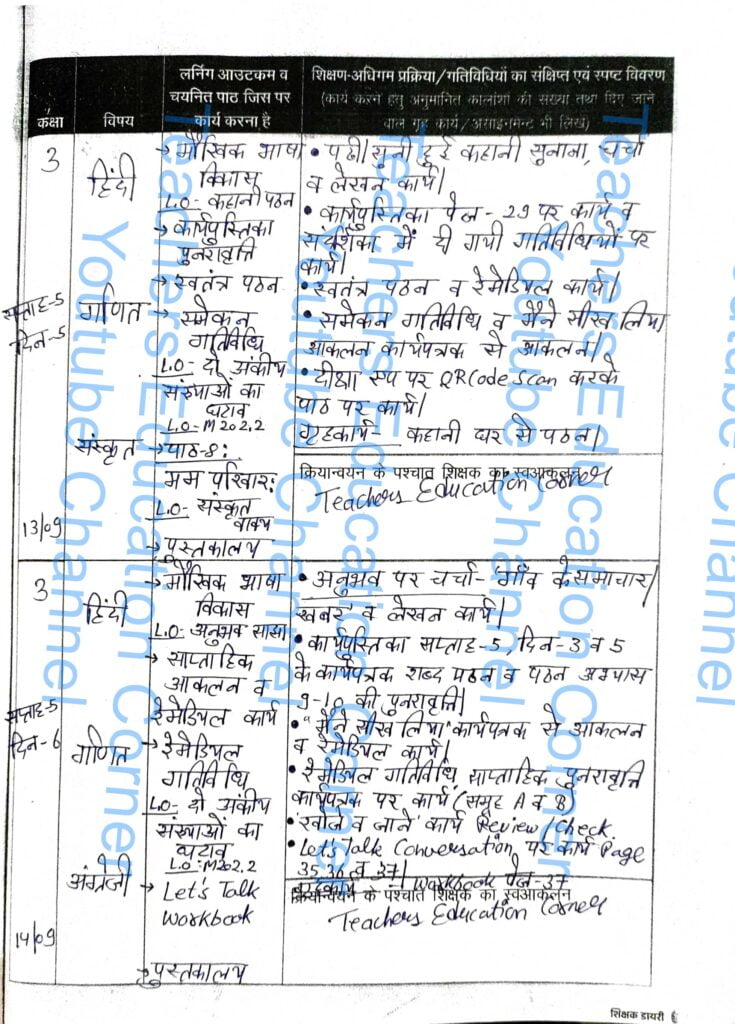 कक्षा
विषय
लर्निंग आउटकम व
चयनित पाठ जिस पर
कार्य करना है
शिक्षण-अधिगम प्रक्रिया/गतिविधियों का संक्षिप्त एवं स्पष्ट विवरण
(कार्य करने हेतु अनुमानित कालांशों की संख्या तथा दिए जाने
वाले गृह कार्य/असाइनमेन्ट भी लिखें)
3
सप्ताह-5
दिन-5
13/09
हिंदी
गणित
संस्कृत
→ मौखिक भाषा
विकास
L.O- कहानी पठन
→ कार्यपुस्तिका
पुनरावृत्ति
→ स्वतंत्र पठन
→ समेकन
गतिविधि
L.O- दो अंकीय
संख्याओं का
घटाव
L.O- M202.2
→ पाठ-8:
मम परिवार:
L.O- संस्कृत
वाक्य
→ पुस्तकालय
• पढी/सुनी हुई कहानी सुनाना, चर्चा
व लेखन कार्य।
• कार्यपुस्तिका पेज - 29 पर कार्य व
संदर्शिका में दी गयी गतिविधियों पर
कार्य।
• स्वतंत्र पठन व रेमेडियल कार्य।
• समेकन गतिविधि व मैने सीख लिया
आकलन कार्यपत्रक से आकलन।
• दीक्षा एप पर QR Code Scan करके
पाठ पर कार्य।
गृहकार्य- कहानी घर से पठन।
क्रियान्वयन के पश्चात शिक्षक का स्वआकलन
Teachers Education Corner
3
सप्ताह-5
दिन-6
14/09
हिंदी
गणित
अंग्रेजी
→ मौखिक भाषा
विकास
L.O- अनुभव साझा
→ साप्ताहिक
आकलन व
रेमेडियल कार्य
→ रेमेडियल
गतिविधि
L.O- दो अंकीय
संख्याओं का
घटाव
L.O: M202.2
→ Let's Talk
Workbook
→ पुस्तकालय
• अनुभव पर चर्चा- 'गाँव के समाचार/
खबर' व लेखन कार्य।
• कार्यपुस्तिका सप्ताह-5, दिन-3 व 5
के कार्यपत्रक शब्द पठन व पठन अभ्यास
9-10 की पुनरावृत्ति।
• "मैने सीख लिया" कार्यपत्रक से आकलन
व रेमेडियल कार्य।
• रेमेडियल गतिविधि, साप्ताहिक पुनरावृत्ति
कार्यपत्रक पर कार्य (समूह A व B)
• 'खोजें व जाने' कार्य Review/Check.
• Let's Talk Conversation पर कार्य Page
35, 36 व 37।
गृहकार्य- Workbook पेज-37
क्रियान्वयन के पश्चात शिक्षक का स्वआकलन
Teachers Education Corner
शिक्षक डायरी 6
Teachers Education Corner
Yotube Channel
Teachers Education Corner
Yotube Channel